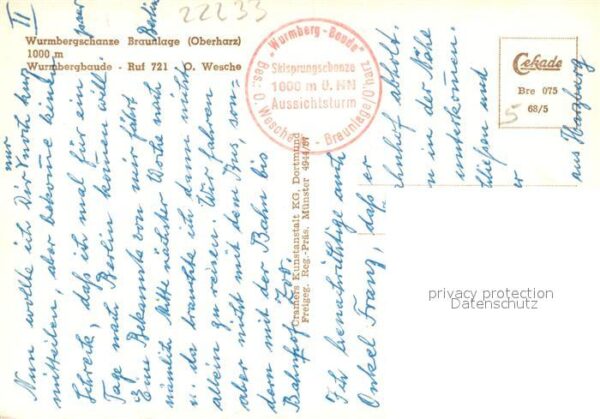 II
22233
Wurmbergschanze Braunlage (Oberharz)
1000 m
Wurmbergbaude - Ruf 721 O. Wesche
"Wurmberg-Baude"
Skisprungschanze
1000 m ü. NN
Aussichtsturm
Bes.: O. Wesche - Braunlage/Oberharz
Cekade
Bre 075
68/5
5
Cramers Kunstanstalt KG, Dortmund
Freigeg. Reg.-Präs. Münster 4944/67
Nun wollte ich Dir noch kurz
mitteilen, aber bekomme keinen
Schreck, daß ich mal für ein paar
Tage nach Berlin kommen will.
Eine Bekannte von mir fährt
nämlich Mitte nächster Woche nach Berlin
u. da brauchte ich dann nicht
allein zu reisen. Wir fahren
aber nicht mit dem Bus, son-
dern mit der Bahn bis
Bahnhof Zoo.
Ich benachrichtige auch
Onkel Franz, daß er
abholt.
in der Nähe
unterkommen.
und
aus Harzburg
privacy protection
Datenschutz